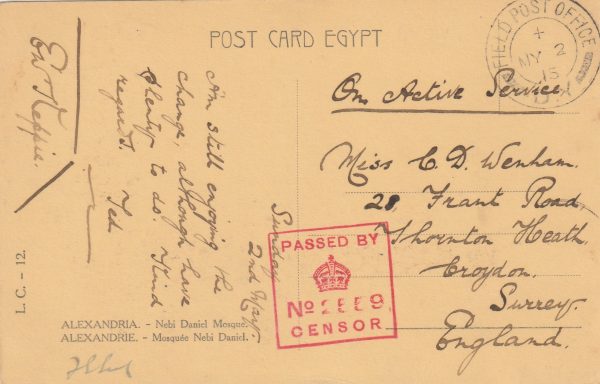 POST CARD EGYPT
FIELD POST OFFICE
MY 2
15
On Active Service
Sunday
2nd May
Am still enjoying the
change, although have
plenty to do. Kind
regards. Ted
Miss C. D. Wenham.
28, Frant Road,
Thornton Heath
Croydon.
Surrey.
England.
PASSED BY
No 2559
CENSOR
L.C. - 12.
ALEXANDRIA. - Nebi Daniel Mosque.
ALEXANDRIE. - Mosquée Nebi Daniel.